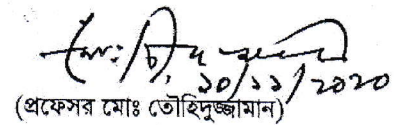 ১০/১১/2020
(প্রফেসর মোঃ তৌহিদুজ্জামান)